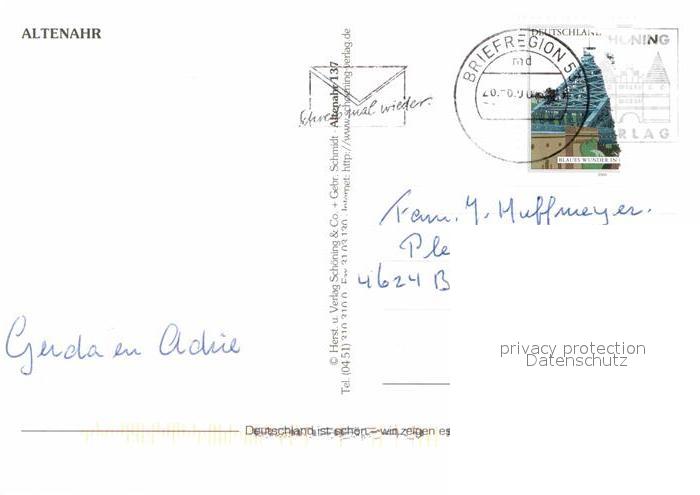 ALTENAHR
DEUTSCHLAND
SCHÖNING
VERLAG
BRIEFREGION 5
md
BLAUES WUNDER IN
mal wieder.
© Herst. u. Verlag Schöning & Co. + Gebr. Schmidt · Altenahr 137
Tel. (04 51) 310 310 0 · Fax 31 03 130 · Internet: http://www.schoening-verlag.de
Fam. Y. Huffmeyer.
Ple
4624 B
Gerda en Adrie
privacy protection
Datenschutz
Deutschland ist schön – wir zeigen es